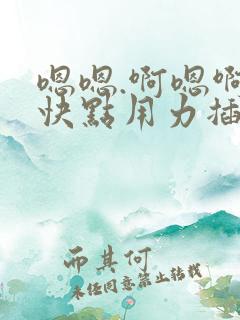 嗯嗯.啊嗯啊
快點用力插
而其何
未经同意禁止转载